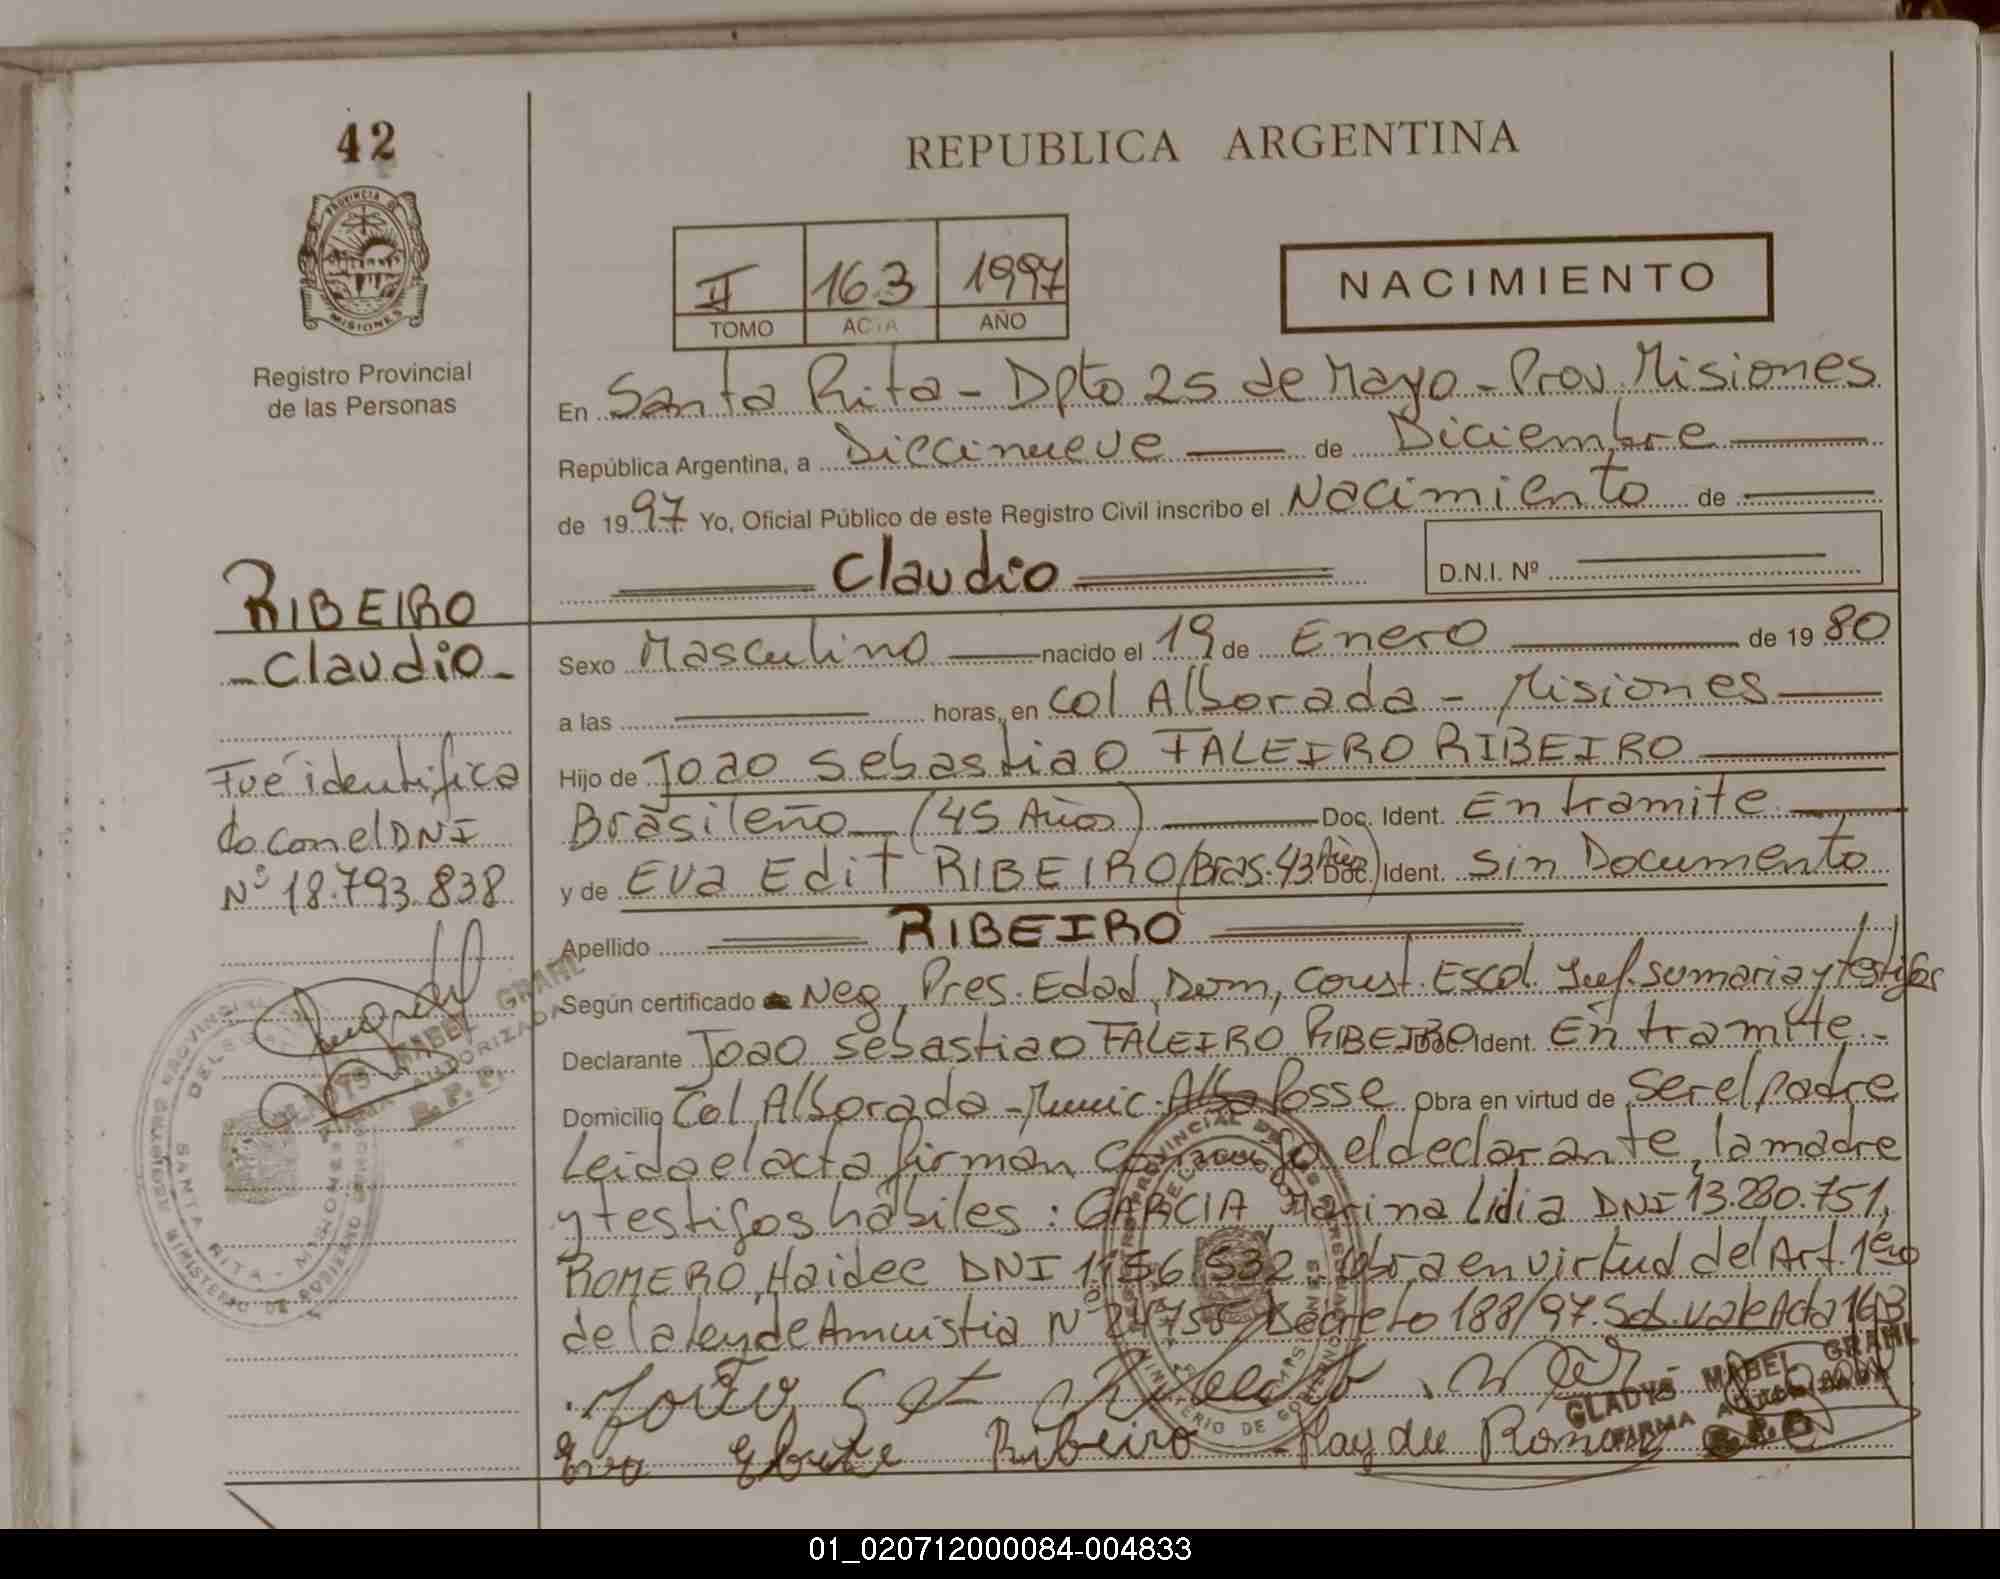 42
REPUBLICA ARGENTINA
PROVINCIA DE
MISIONES
Registro Provincial
de las Personas
II 163 1997
TOMO ACTA AÑO
NACIMIENTO
En Santa Rita - Dpto 25 de Mayo - Prov. Misiones
República Argentina, a Diecinueve de Diciembre
de 1997 Yo, Oficial Público de este Registro Civil inscribo el Nacimiento de
Claudio
D.N.I. Nº
RIBEIRO
- Claudio -
Fué identifica
do con el DNI
Nº 18.793.838
Sexo Masculino nacido el 19 de Enero de 1980
a las horas, en Col Alborada - Misiones
Hijo de Joao Sebastiao FALEIRO RIBEIRO
Brasileño (45 Años) Doc. Ident. En tramite
y de Eva Edit RIBEIRO (Bras. 43 Años) Doc. Ident. Sin Documento
Apellido RIBEIRO
Según certificado Neg, Pres. Edad, Dom, Const. Escol. Inf. sumaria y testigos
Declarante Joao Sebastiao FALEIRO RIBEIRO Doc. Ident. En tramite -
Domicilio Col Alborada - Munic. Alba Posse Obra en virtud de ser el padre
Leida el acta firman conmigo el declarante, la madre
y testigos hábiles: GARCIA Marina Lidia DNI 13.280.751,
ROMERO, Haidee DNI 532, obra en virtud del Art. 1ero
de la ley de Amnistia Nº 24755 Decreto 188/97. Sob. vale Acta 163
Eva Ribeiro Haydee Romero
GLADYS MABEL GRAHL
FIRMA AUTORIZADA
R.P.P.
GLADYS MABEL GRAHL
FIRMA AUTORIZADA
R.P.P.
REGISTRO PROVINCIAL DE LAS PERSONAS
MINISTERIO DE GOBIERNO
SANTA RITA - MISIONES
01_020712000084-004833